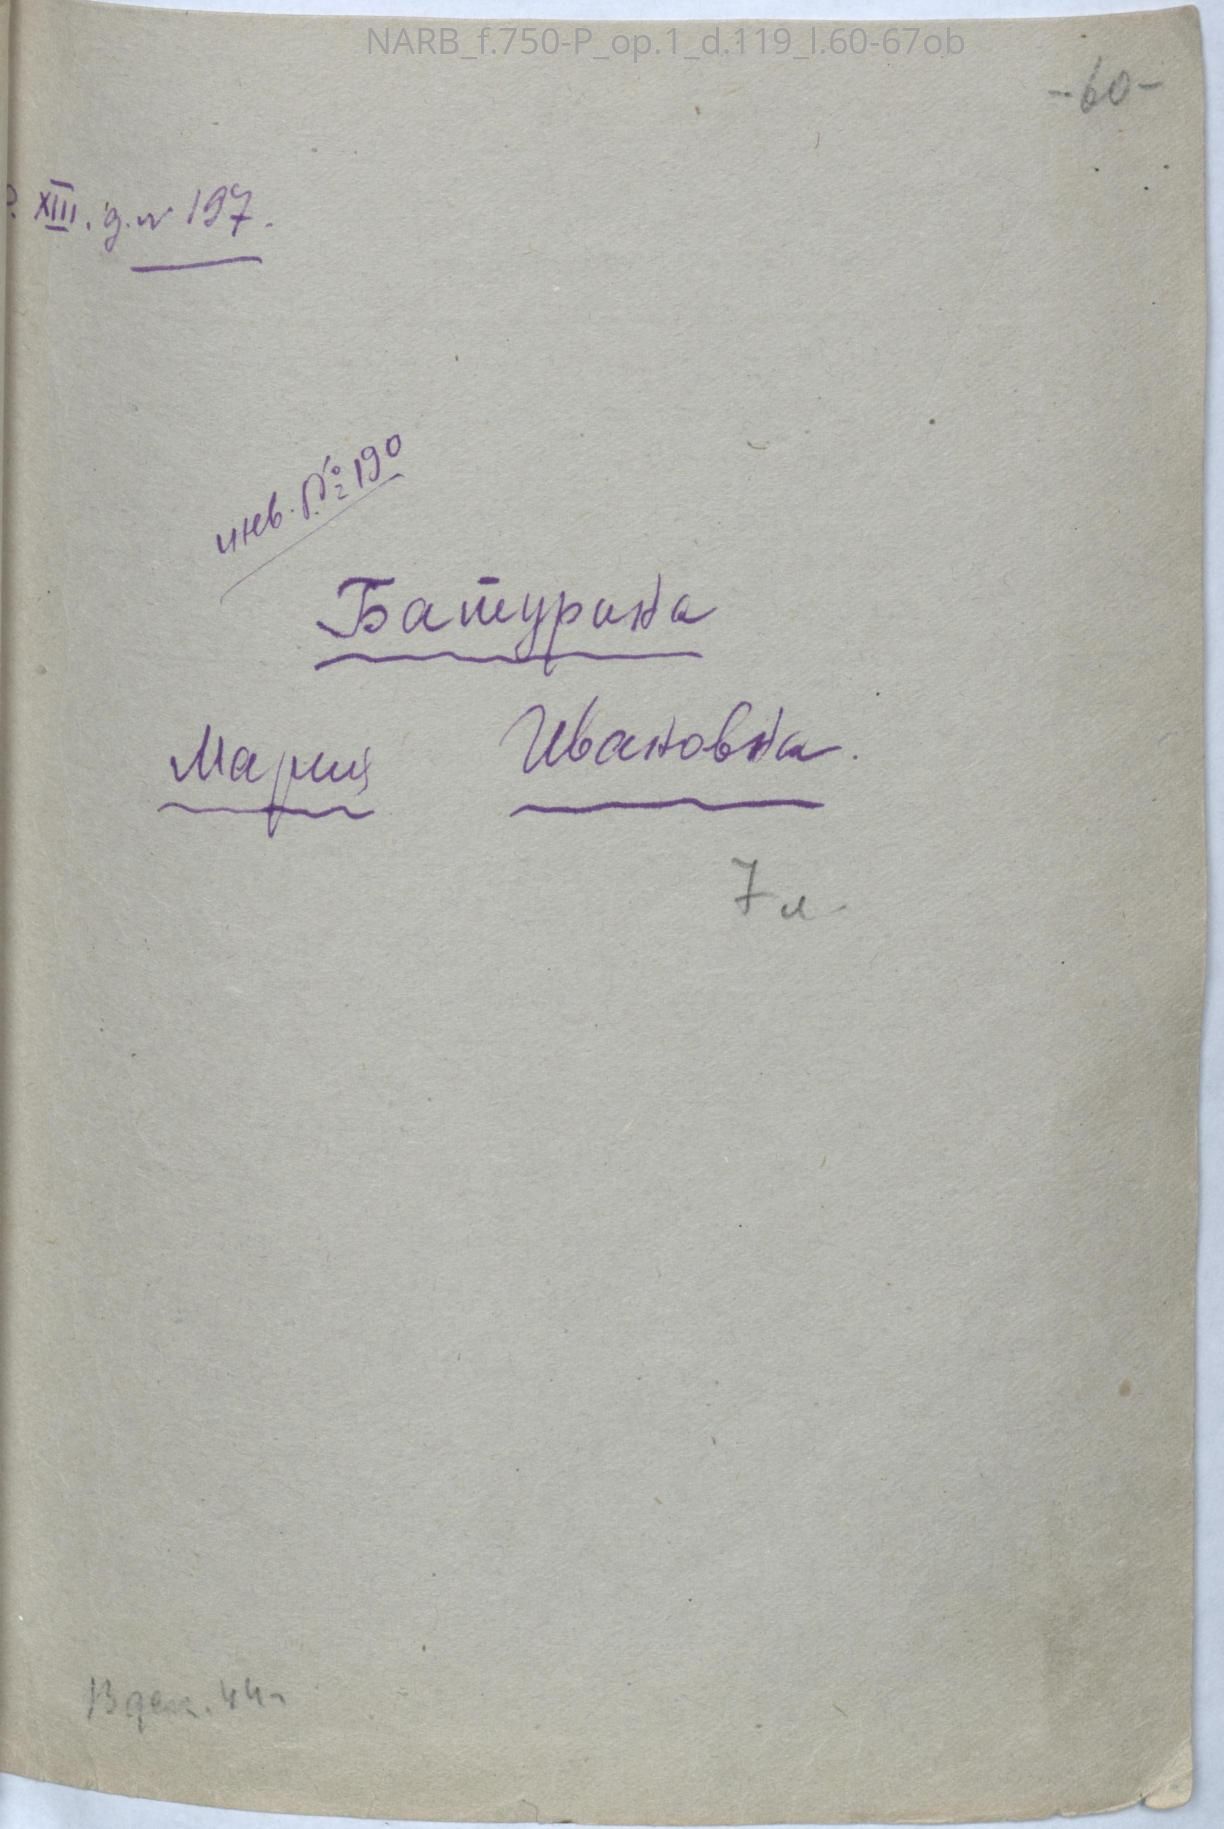 NARB_f.750-P_op.1_d.119_l.60-67ob
-60-
XIII. д. № 197.
инв. № 190
Батурина
Мария Ивановна.
7 л.
13 дек. 44 г